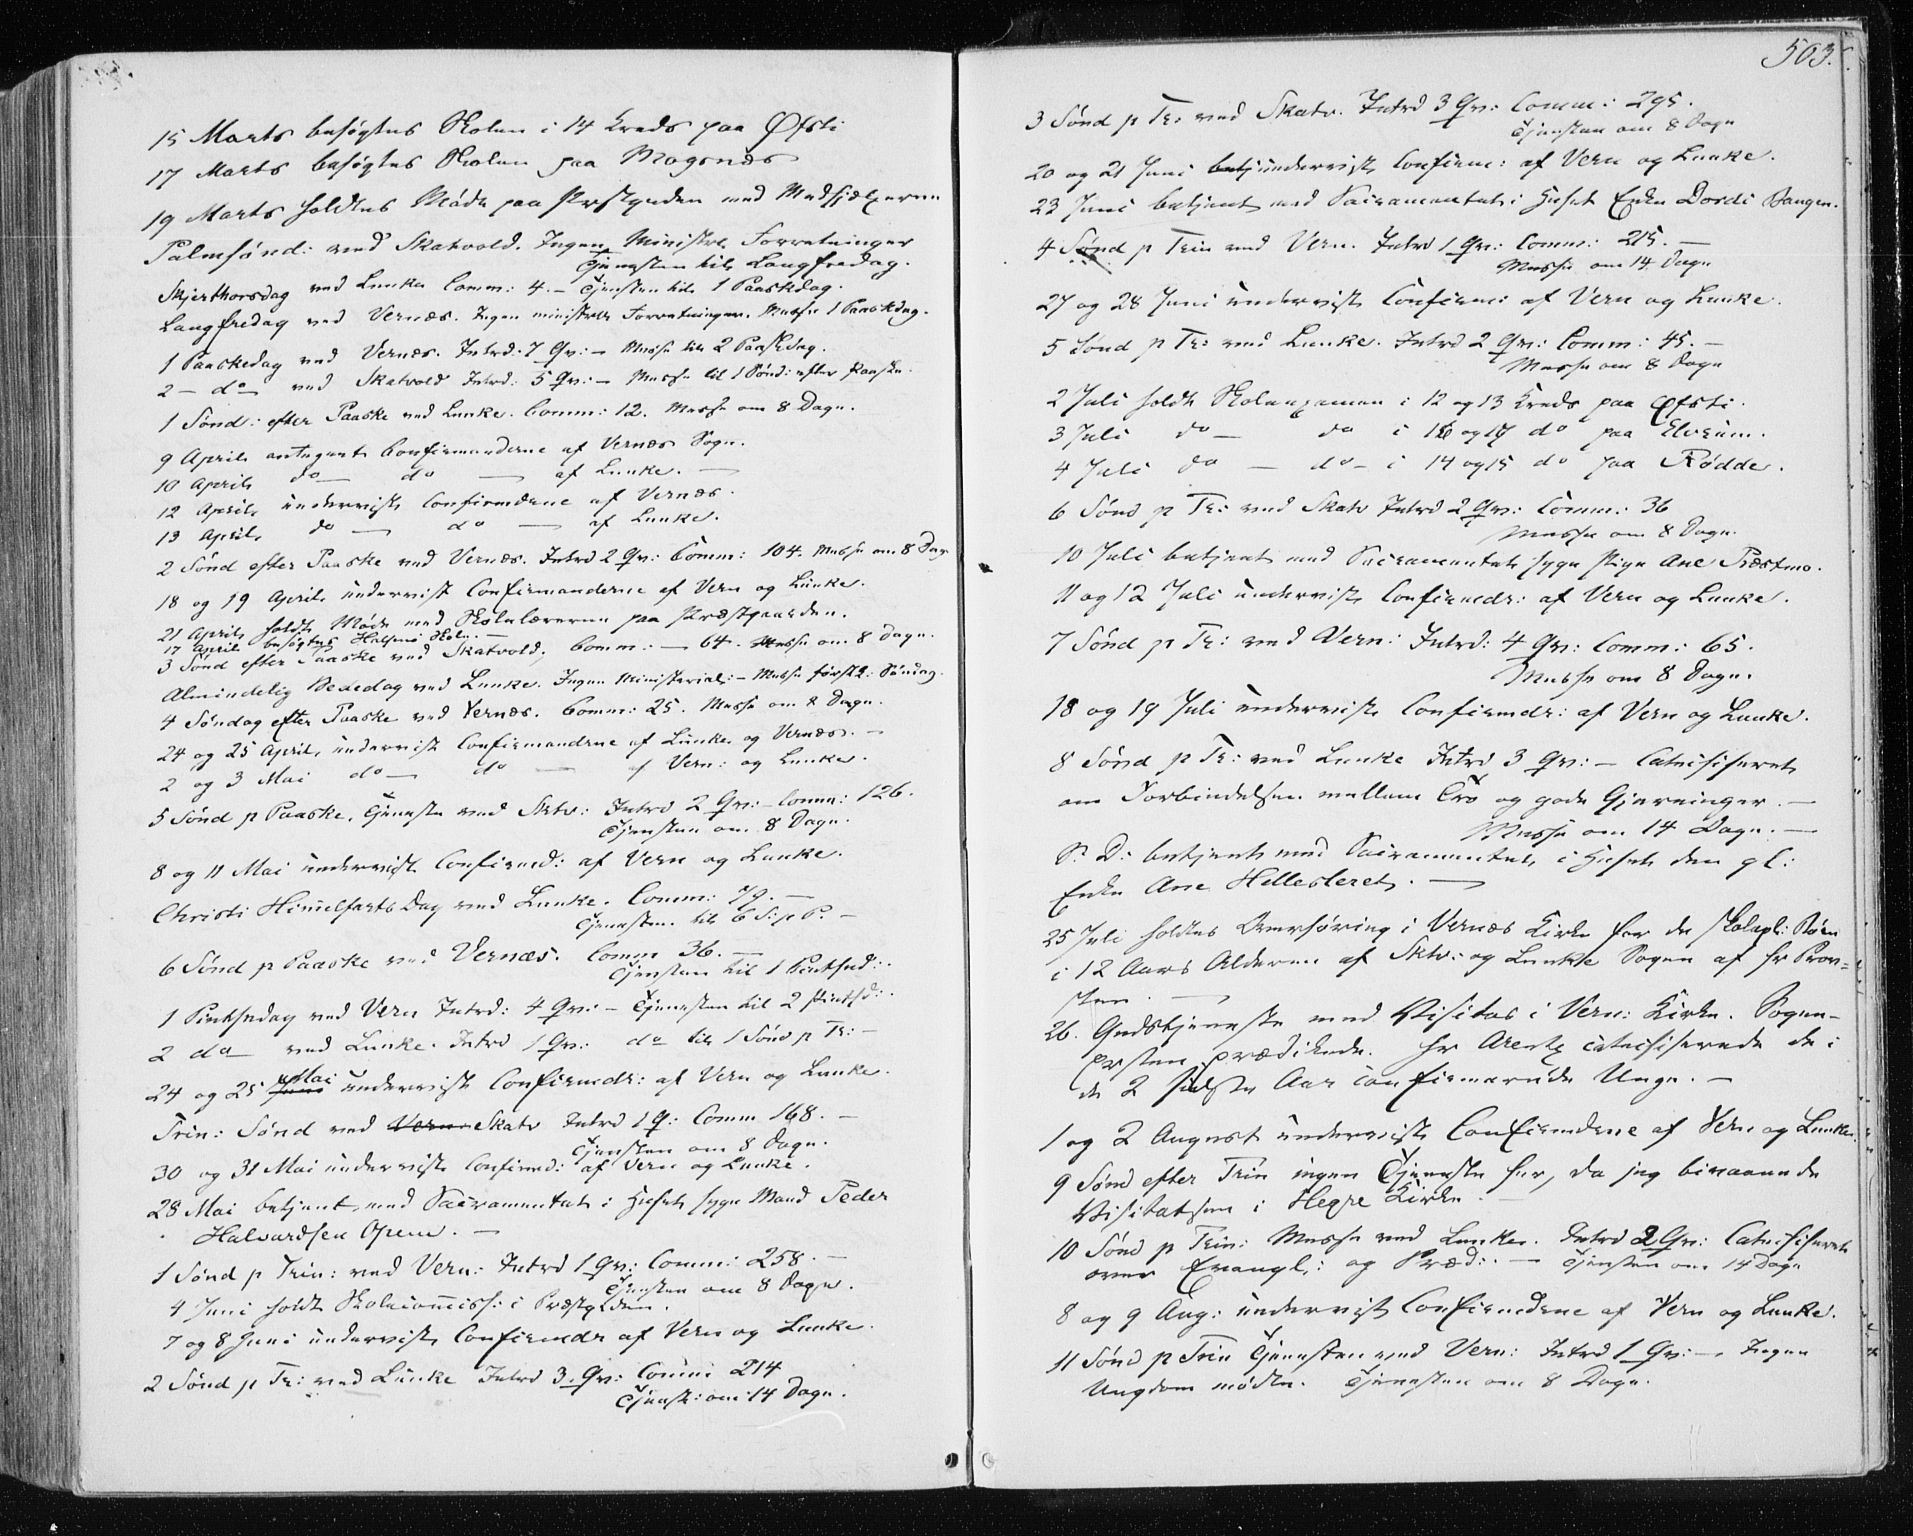 15 Marts besøgtes Skolen i 14 Kreds paa Øfsti
17 Marts besøgtes Skolen paa Mogsnæs
19 Marts holdtes Møde paa Prstgrden med Medhjælperne
Palmsønd: ved Skatvold. Ingen Ministr. Forretninger
Tjenesten til Langfredag.
Skjerthorsdag ved Lunke Comm: 4. – Tjensten til 1 Paaskdag.
Langfredag ved Vernæs. Ingen ministrle Forretninger. Messe 1 Paaskdag.
1 Paaskedag ved Vernæs. Intrd: 7 Qv: – Messe til 2 Paaskdag.
2 – do ved Skatvold Intrd: 5 Qv: – Messe til 1 Sønd: efter Paaske.
1 Sønd: efter Paaske ved Lunke. Comm: 12. Messe om 8 Dage.
9 April antegnet Confirmanderne af Vernæs Sogn.
10 April do – do – af Lunke. –
12 April undervist Confirmdrne af Vernæs.
13 April do – do – af Lunke.
2 Sønd efter Paaske ved Vernæs. Intrd 2 Qv: Comm: 104. Messe om 8 Dage
18 og 19 April undervist Confirmanderne af Vern og Lunke.
21 April holdt Møde med Skolelærerne paa Præstgaarden.
17 April besøgtes Halsens Skole. –
3 Sønd efter Paaske ved Skatvold, Comm: – 64. Messe om 8 Dage.
Almindelig Bededag ved Lunke. Ingen Ministerial: – Messe først k: Søndag.
4 Søndag efter Paaske ved Vernæs. Comm: 25. Messe om 8 Dage.
24 og 25 April, undervist Confirmandrne af Lunke og Vernæs. –
2 og 3 Mai do – do – af Vern: og Lunke.
5 Sønd p Paaske, Tjeneste ved Sktv: Intrd 2 Qv: – Comm: 126.
Tjensten om 8 Dage.
8 og 11 Mai undervist Confirmd: af Vern og Lunke.
Christi Himmelfarts Dag ved Lunke. Comm: 79. –
Tjenesten til 6 S: p P. –
6 Sønd p Paaske ved Vernæs. Comm 36. –
Tjensten til 1 Pintsed:.
1 Pintsedag ved Vern Intrd: 4 Qv: – Tjenesten til 2 Pintsd:.
2 do – ved Lunke. Intrd 1 Qv: do til 1 Sønd p Tr: –
24 og 25 Juni Mai undervist Confirmdr: af Vern og Lunke.
Trin: Sønd ved Vern Skatv Intrd 1 Q: Comm 168. –
Tjensten om 8 Dage.
30 og 31 Mai undervist Confirmd: af Vern og Lunke.
28 Mai betjent med Sacramentet i Huset syge Mand Peder
Halvardsen Opem. –
1 Sønd p Trin: ved Vern: Intrd 1 Qv: Comm: 258. –
Tjensten om 8 Dage.
4 Juni holdt Skolecommiss: i Præstgrden.
7 og 8 Juni undervist Confirmdr af Vern og Lunke.
2 Sønd p Tr: ved Lunke Intrd 3 Qv: Comm: 214
Tjenst: om 14 Dage.
503.
3 Sønd p Tr: ved Skatv. Intrd 3 Qv: Comm: 295.
Tjensten om 8 Dage
20 og 21 Juni betj undervist Confirm: af Vern og Lunke.
23 Juni betjent med Sacramentet i Huset Enke Dordi Bangen.
4 Sønd p Trin ved Vern. Intrd 1 Qv: Comm: 215. –
Messe om 14 Dage
27 og 28 Juni undervist Confirm: af Vern og Lunke.
5 Sønd p Tr: ved Lunke. Intrd 2 Qv: Comm: 45. –
Messe om 8 Dage
2 Juli holdt Skoleexamen i 12 og 13 Kreds paa Øfsti.
3 Juli do – do i 16 og 17 do paa Elvrum.
4 Juli do – do – i 14 og 15 do paa Rødde.
6 Sønd p Tr: ved Skatv Intrd 2 Qv: Comm: 36
Messe om 8 Dage.
10 Juli betjent med Sacramentet syge Pige Ane Præstmo.
11 og 12 Juli undervist Confirmdr: af Vern og Lunke.
7 Sønd p Tr: ved Vern: Intrd: 4 Qv: Comm: 65.
Messe om 8 Dage.
18 og 19 Juli undervist Confirmdr: af Vern og Lunke.
8 Sønd p Tr: ved Lunke Intrd 3 Qv: – Catechiseret
om Forbindelsen mellem Tro og gode Gjerninger. –
Messe om 14 Dage. –
S: D: betjent med Sacramentet i Huset den gl:
Enke Ane Hellesleret. –
25 Juli holdtes Overhøring i Vernæs Kirke for de skolepl: Børn
i 12 Aars Alderen af Sktv: og Lunke Sogne af Hr Prov=
sten. –
26. Gudstjeneste med Visitas i Vern: Kirke. Sogne-
prsten prædikede. Hr Arentz catechiserede de i
de 2 sidste Aar confirmerede Unge. –
1 og 2 August undervist Confirmdrne af Vern og Lunke.
9 Sønd efter Trin ingen Tjeneste her, da jeg bivaanede
Visitatsen i Hegre Kirke. –
10 Sønd p Trin: Messe ved Lunke. Intrd 2 Qv: Catechiseret
over Evangl: og Præd: – Tjensten om 14 Dage
8 og 9 Aug: undervist Confirmdrne af Vern og Lunke.
11 Sønd p Trin Tjenesten ved Vern: Intrd 1 Qv: –. Ingen
Ungdom mødte. Tjenesten om 8 Dage.